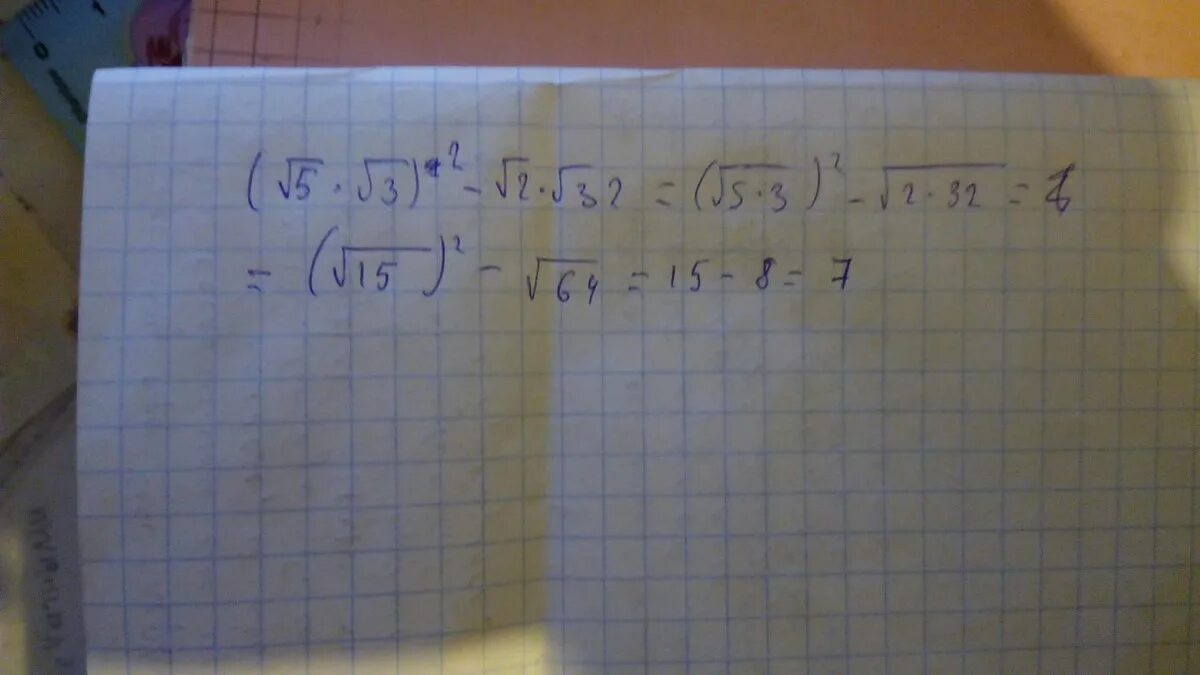 (√5 · √3)² - √2 · √32 = (√5·3)² - √2·32 =
= (√15)² - √64 = 15 - 8 = 7